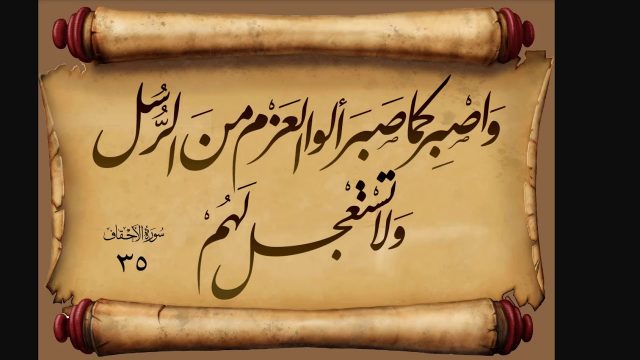 وَاصْبِر كَمَا صَبَرَ أُلوا العَزم مِنَ الرُّسُل
وَلا تَستَعجِل لَهُم
سُورَة الأَحقَاف
٣٥